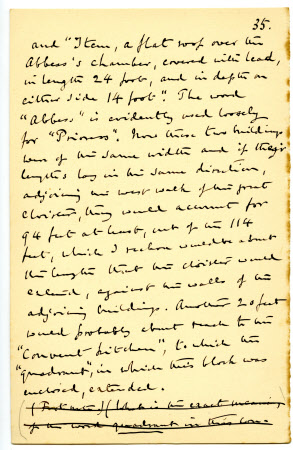 35.
and "Item, a flat roof over the
Abbess's chamber, covered with lead,
in length 24 foot, and in depth on
either side 14 foot". The word
"Abbess" is evidently used loosely
for "Prioress". Now these two buildings
were of the same width and if their
lengths lay in the same direction,
adjoining the west walk of the great
cloister, they would account for
94 feet at least, out of the 114
feet, which I reckon would be about
the length that the cloister would
extend, against the walls of the
adjoining buildings. Another 20 feet
would probably about reach to the
"Convent kitchen", to which the
"quadrant", in which this block was
enclosed, extended.
(Foot note) (What is the exact meaning
of the word quadrant in this